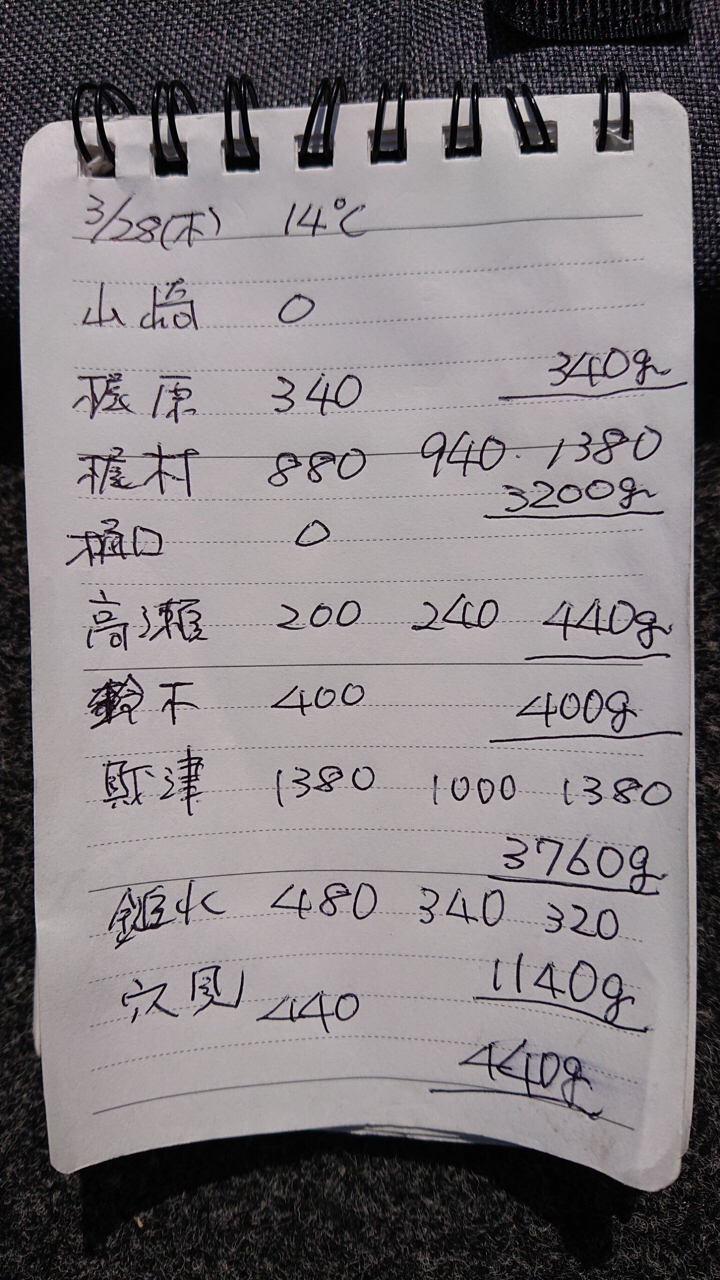 3/28(木) 14℃
山崎 0
梶原 340 340g
梶村 880 940. 1380
3200g
樋口 0
高瀬 200 240 440g
鈴木 400 400g
財津 1380 1000 1380
3760g
鎚水 480 340 320
1140g
穴見 440
440g